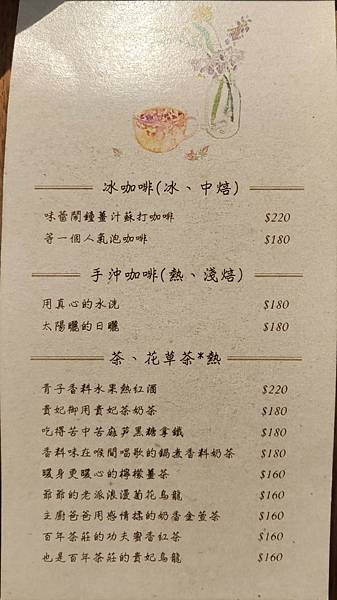 冰咖啡(冰、中焙)
味蕾鬧鐘薑汁蘇打咖啡 $220
等一個人氣泡咖啡 $180
手沖咖啡(熱、淺焙)
用真心的水洗 $180
太陽曬的日曬 $180
茶、花草茶*熱
青子香料水果熱紅酒 $220
貴妃御用貴妃茶奶茶 $180
吃得苦中苦麻笋黑糖拿鐵 $180
香料味在喉間唱歌的鍋煮香料奶茶 $180
暖身更暖心的檸檬薑茶 $160
爺爺的老派浪漫菊花烏龍 $160
主廚爸爸用感情揉的奶香金萱茶 $160
百年茶莊的功夫蜜香紅茶 $160
也是百年茶莊的貴妃烏龍 $160